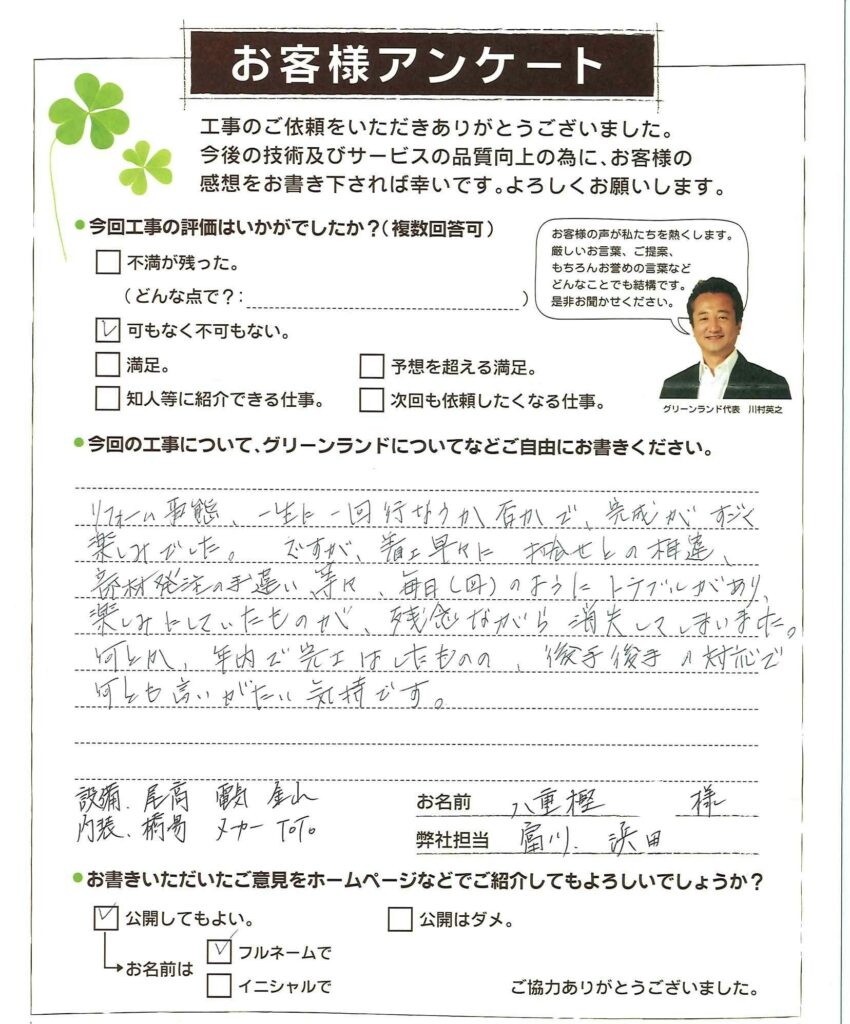 お客様アンケート
工事のご依頼をいただきありがとうございました。
今後の技術及びサービスの品質向上の為に、お客様の
感想をお書き下されば幸いです。よろしくお願いします。
●今回工事の評価はいかがでしたか？（複数回答可）
不満が残った。
（どんな点で？：　）
可もなく不可もない。
満足。
予想を超える満足。
知人等に紹介できる仕事。
次回も依頼したくなる仕事。
お客様の声が私たちを熱くします。
厳しいお言葉、ご提案、
もちろんお誉めの言葉など
どんなことでも結構です。
是非お聞かせください。
グリーンランド代表　川村英之
●今回の工事について、グリーンランドについてなどご自由にお書きください。
リフォーム事態、一生に一回行なうか否かで、完成がすごく
楽しみでした。ですが、着工早々に打合せとの相違、
部材発注の手違い、等々、毎日(回)のようにトラブルがあり、
楽しみにしていたものが、残念ながら消失してしまいました。
何とか、年内で完工はしたものの、後手後手の対応で
何とも言いがたい気持です。
設備、尾高　電気　金山
内装、橋場　メーカー TOTO
お名前　八重樫　様
弊社担当　富川、浜田
●お書きいただいたご意見をホームページなどでご紹介してもよろしいでしょうか？
公開してもよい。
公開はダメ。
お名前は
フルネームで
イニシャルで
ご協力ありがとうございました。